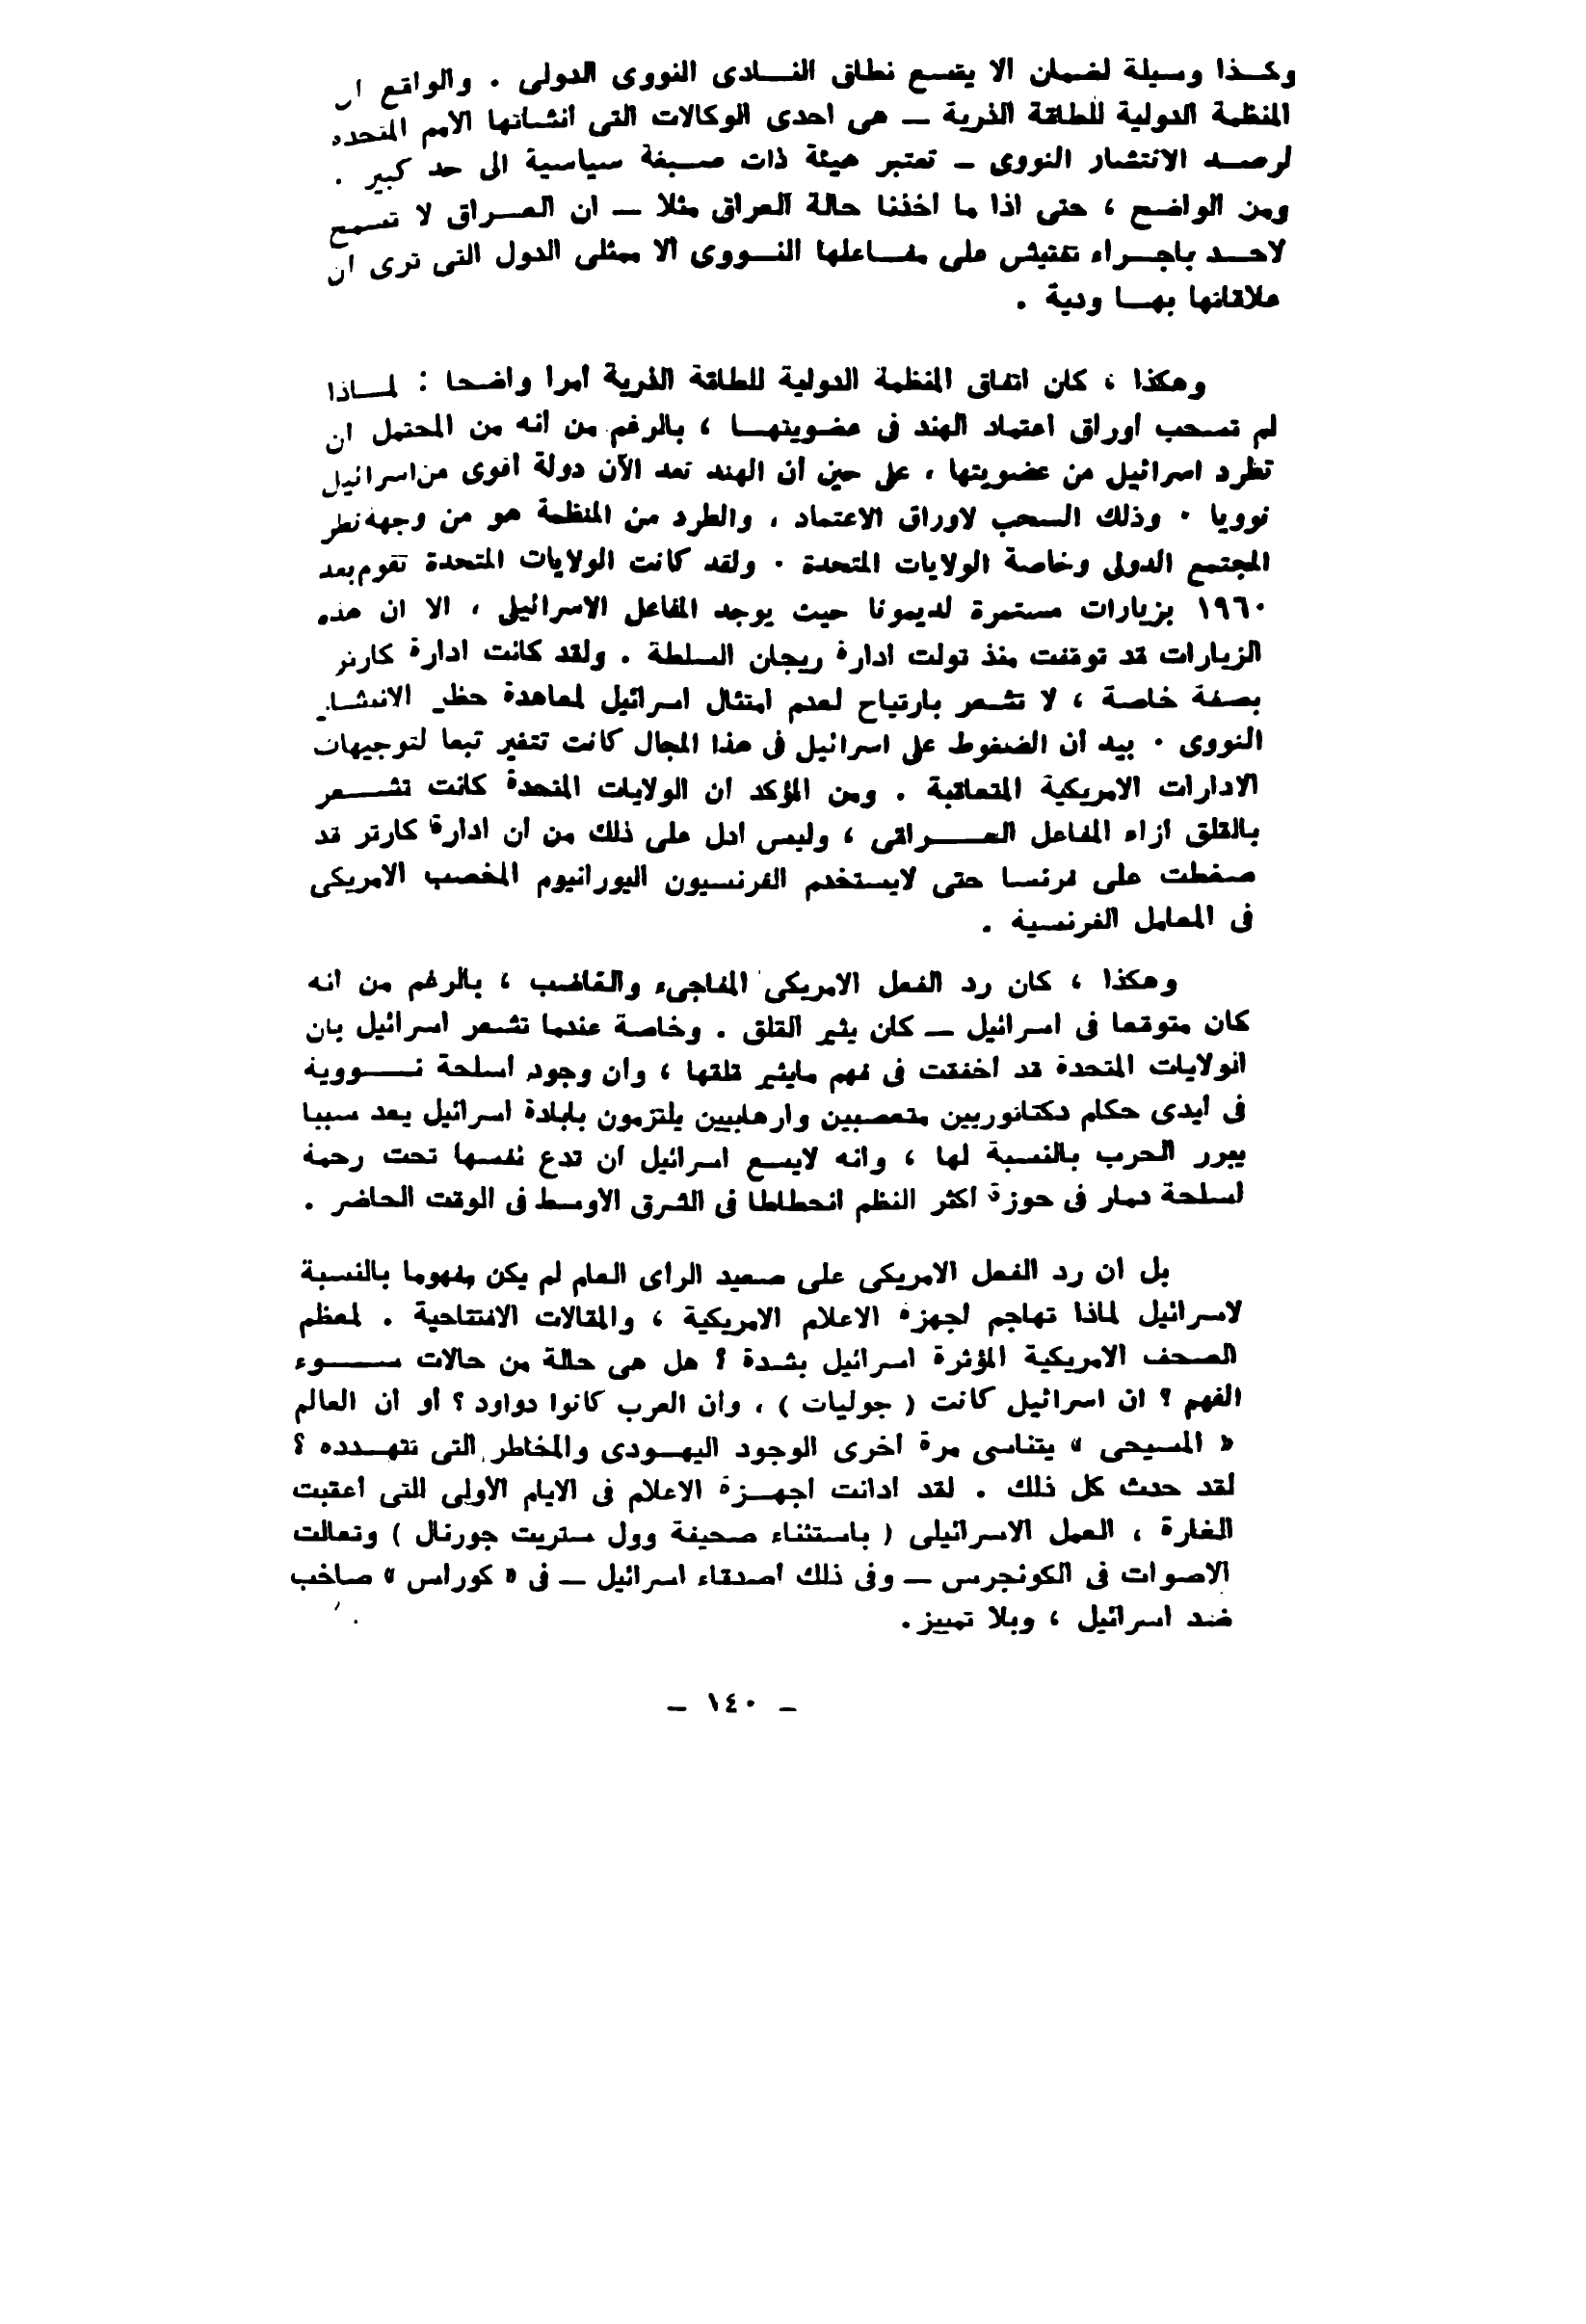 وكذا وسيلة لضمان الا يتسع نطاق النادى النووى الدولى . والواقع ان
المنظمة الدولية للطاقة الذرية – هى احدى الوكالات التى انشاتها الامم المتحده
لرصد الانتشار النووى – تعتبر هيئة ذات صبغة سياسية الى حد كبير .
ومن الواضح ، حتى اذا ما اخذنا حالة العراق مثلا – ان العراق لا تسمح
لاحد باجراء تفتيش على مفاعلها النووى الا ممثلى الدول التى ترى ان
علاقاتها بها ودية .
وهكذا ، كان اتفاق المنظمة الدولية للطاقة الذرية امرا واضحا : لماذا
لم تسحب أوراق اعتماد الهند فى عضويتها ، بالرغم من انه من المحتمل ان
تطرد اسرائيل من عضويتها ، على حين أن الهند تعد الآن دولة أقوى من اسرائيل
نوويا . وذلك السحب لاوراق الاعتماد ، والطرد من المنظمة هو من وجهة نظر
المجتمع الدولى وخاصة الولايات المتحدة . ولقد كانت الولايات المتحدة تقوم بعد
١٩٦٠ بزيارات مستمرة لديمونا حيث يوجد المفاعل الاسرائيلى ، الا ان هذه
الزيارات قد توقفت منذ تولت ادارة ريجان السلطة . ولقد كانت ادارة كارتر
بصفة خاصة ، لا تشعر بارتياح لعدم امتثال اسرائيل لمعاهدة حظر الانتشار
النووى . بيد أن الضغوط على اسرائيل فى هذا المجال كانت تتغير تبعا لتوجيهات
الادارات الامريكية المتعاقبة . ومن المؤكد ان الولايات المتحدة كانت تشعر
بالقلق ازاء المفاعل العراقى ، وليس ادل على ذلك من أن ادارة كارتر قد
ضغطت على فرنسا حتى لايستخدم الفرنسيون اليورانيوم المخصب الامريكى
فى المعامل الفرنسية .
وهكذا ، كان رد الفعل الامريكى المفاجىء والغاضب ، بالرغم من انه
كان متوقعا فى اسرائيل – كان يثير القلق . وخاصة عندما تشعر اسرائيل بان
الولايات المتحدة قد اخفقت فى فهم مايثير قلقها ، وأن وجود أسلحة نووية
فى أيدى حكام دكتاتوريين متعصبين وارهابيين يلتزمون بابادة اسرائيل يعد سببا
يبرر الحرب بالنسبة لها ، وانه لايسع اسرائيل أن تدع نفسها تحت رحمة
أسلحة دمار فى حوزة أكثر النظم انحطاطا فى الشرق الاوسط فى الوقت الحاضر .
بل أن رد الفعل الامريكى على صعيد الراى العام لم يكن مفهوما بالنسبة
لاسرائيل لماذا تهاجم اجهزة الاعلام الامريكية ، والمقالات الافتتاحية . لمعظم
الصحف الامريكية المؤثرة اسرائيل بشدة ؟ هل هى حالة من حالات سوء
الفهم ؟ ان اسرائيل كانت ( جوليات ) ، وأن العرب كانوا دواود ؟ أو أن العالم
« المسيحى » يتناسى مرة اخرى الوجود اليهودى والمخاطر التى تتهدده ؟
لقد حدث كل ذلك . لقد ادانت اجهزة الاعلام فى الايام الأولى التى أعقبت
الغارة ، العمل الاسرائيلى ( باستثناء صحيفة وول ستريت جورنال ) وتعالت
الاصوات فى الكونجرس – وفى ذلك اصدقاء اسرائيل – فى « كوراس » صاخب
ضد اسرائيل ، وبلا تمييز .
– ١٤٠ –